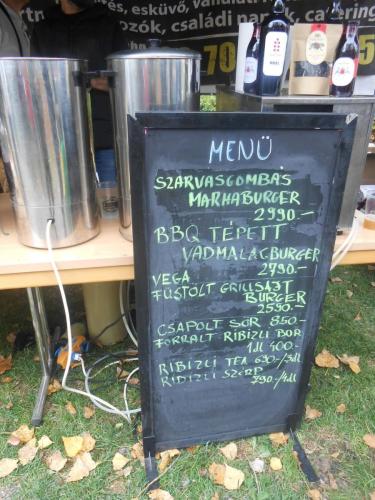 tés, esküvő,
családi
catering
70
MENÜ
SZARVASGOMBÁS
MARHABURGER
2990.-
BBQ TÉPETT
VADMALACBURGER
2790.-
VEGA
FÜSTÖLT GRILLSAJT
BURGER
2590.-
CSAPOLT SÖR 850.-
FORRALT RIBIZLI BOR
1dl 400.-
RIBIZLI TEA 690-/3dl
RIBIZLI SZÖRP